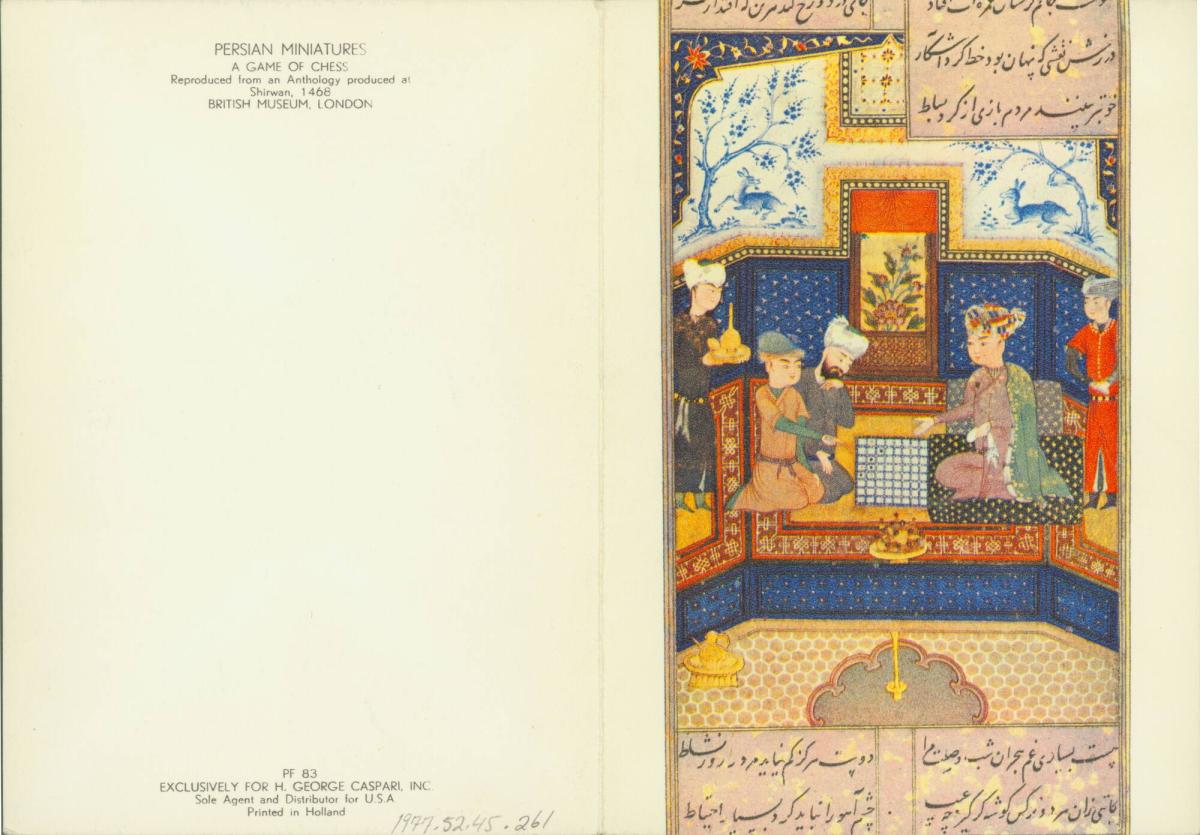 PERSIAN MINIATURES
A GAME OF CHESS
Reproduced from an Anthology produced at
Shirwan, 1468
BRITISH MUSEUM, LONDON
PF 83
EXCLUSIVELY FOR H. GEORGE CASPARI, INC.
Sole Agent and Distributor for U.S.A
Printed in Holland
1977.52.45.261
نقشی که پنهان بود خط کرد آشکار
خوبتر بینند مردم بازی از گرد بساط
هست بسیاری غم هجران شب وصلت مرا
دوست هرگز کم نیاید مرد را روز نشاط
کاتبی زان
نباید کرد بسیار احتیاط